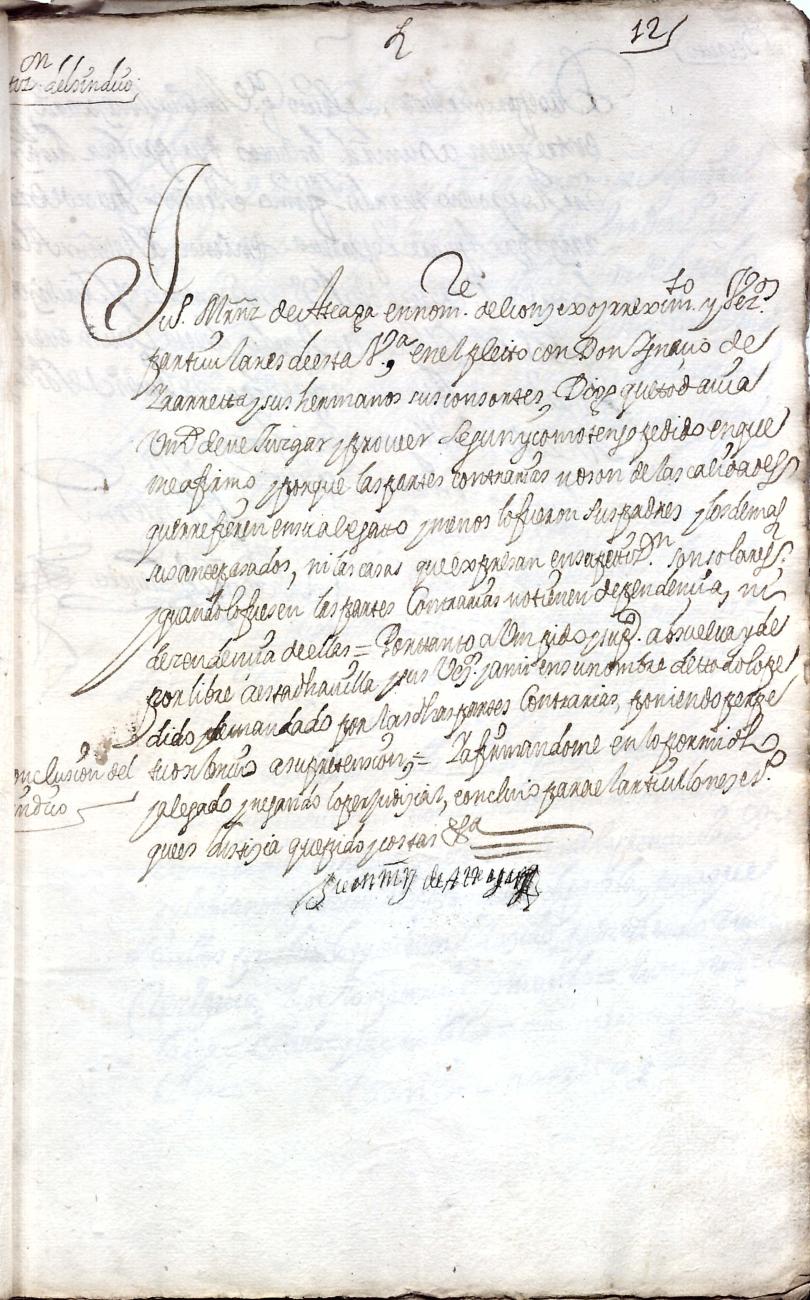 12
del sindico
Ju.º Mrñz de Arteaga en nom.re del conzexo y rreximto y Vezos
particulares de esta V.ª en el pleito con Don Ygnacio de
Zearretta y sus hermanos sus consortes, Digo que todauia
Vmd deue Juzgar y prouer segun y como tengo pedido en que
me afirmo y porque las partes contrarias no son de las calidades
que rrefieren en su alegatto y menos lo fueron sus padres y los demas
sus antepasados, ni las casas que expresan en su petizon. son solares
y quando lo fuesen las partes Contrarias no tienen dependencia, ni
dezendencia de ellas = Por tanto a Vm pido y sup.co absuelua y de
por libre a esta dha uilla y sus Vez.os y a mi en su nombre de todo lo pe
dido y demandado por las dhas partes Contrarias, poniendo perpe
tuo silencio a su pretension, = Y afirmandome en lo por mi dho
y alegado y negando lo perjudizial, concluio para el articulo
que es Justizia que pido y costas &ª
onclusion del
ndico
Ju.º Mrñz de Arteaga